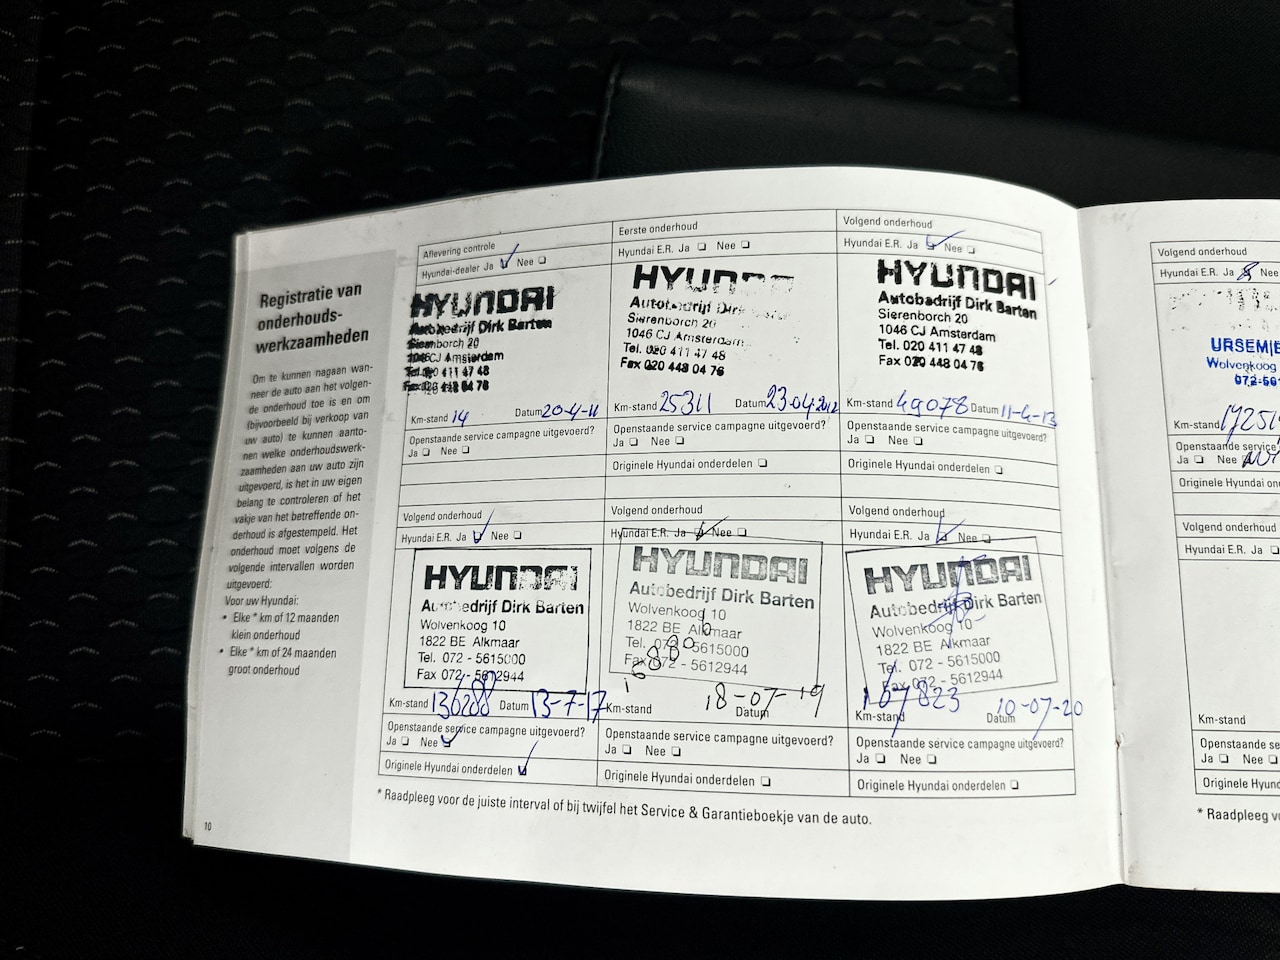 Registratie van
onderhouds-
werkzaamheden
Om te kunnen nagaan wan-
neer de auto aan het volgen-
de onderhoud toe is en om
(bijvoorbeeld bij verkoop van
uw auto) te kunnen aanto-
nen welke onderhoudswerk-
zaamheden aan uw auto zijn
uitgevoerd, is het in uw eigen
belang te controleren of het
vakje van het betreffende on-
derhoud is afgestempeld. Het
onderhoud moet volgens de
volgende intervallen worden
uitgevoerd:
Voor uw Hyundai:
• Elke * km of 12 maanden
klein onderhoud
• Elke * km of 24 maanden
groot onderhoud
10
Aflevering controle
Hyundai-dealer Ja Nee
HYUNDAI
Autobedrijf Dirk Barten
Sierenborch 20
1046 CJ Amsterdam
Tel. 020 411 47 48
Fax 020 448 04 76
Km-stand 14 Datum 20-4-11
Openstaande service campagne uitgevoerd?
Ja Nee
Eerste onderhoud
Hyundai E.R. Ja Nee
HYUNDAI
Autobedrijf Dirk
Sierenborch 20
1046 CJ Amsterdam
Tel. 020 411 47 48
Fax 020 448 04 76
Km-stand 25311 Datum 23-04-2012
Openstaande service campagne uitgevoerd?
Ja Nee
Originele Hyundai onderdelen
Volgend onderhoud
Hyundai E.R. Ja Nee
HYUNDAI
Autobedrijf Dirk Barten
Sierenborch 20
1046 CJ Amsterdam
Tel. 020 411 47 48
Fax 020 448 04 76
Km-stand 49078 Datum 11-4-13
Openstaande service campagne uitgevoerd?
Ja Nee
Originele Hyundai onderdelen
Volgend onderhoud
Hyundai E.R. Ja Nee
HYUNDAI
Autobedrijf Dirk Barten
Wolvenkoog 10
1822 BE Alkmaar
Tel. 072 - 5615000
Fax 072 - 5612944
Km-stand 136288 Datum 13-7-17
Openstaande service campagne uitgevoerd?
Ja Nee
Originele Hyundai onderdelen
Volgend onderhoud
Hyundai E.R. Ja Nee
HYUNDAI
Autobedrijf Dirk Barten
Wolvenkoog 10
1822 BE Alkmaar
Tel. 072 - 5615000
Fax 072 - 5612944
Km-stand Datum 18-07-19
Openstaande service campagne uitgevoerd?
Ja Nee
Originele Hyundai onderdelen
Volgend onderhoud
Hyundai E.R. Ja Nee
HYUNDAI
Autobedrijf Dirk Barten
Wolvenkoog 10
1822 BE Alkmaar
Tel. 072 - 5615000
Fax 072 - 5612944
Km-stand 167823 Datum 10-07-20
Openstaande service campagne uitgevoerd?
Ja Nee
Originele Hyundai onderdelen
* Raadpleeg voor de juiste interval of bij twijfel het Service & Garantieboekje van de auto.
Volgend onderhoud
Hyundai E.R. Ja Nee
Wolvenkoog
Km-stand
Openstaande service
Ja Nee
Originele Hyundai
Volgend onderhoud
Hyundai E.R. Ja
Km-stand
Openstaande
Ja Nee
Originele Hyundai
* Raadpleeg